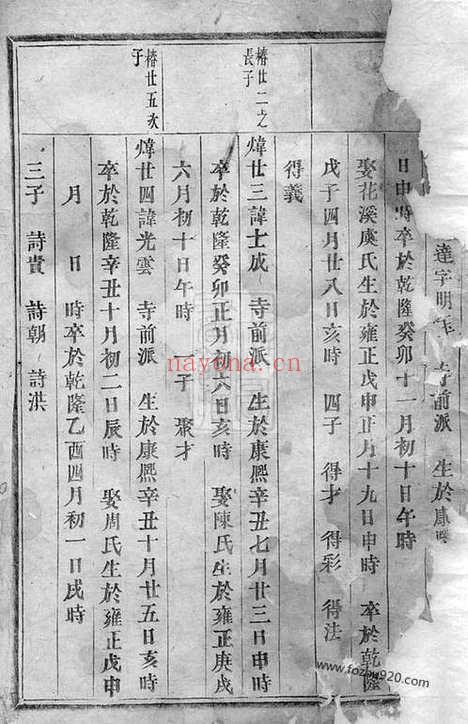 達字明 寺前派 生於康熙
日申時卒於乾隆癸卯十一月初十日午時
娶花溪虞氏生於雍正戊申正月十九日申時 卒於乾隆
戊子四月廿八日亥時 四子 得才 得彩 得法
得義
椿廿二之
長子
煒廿三諱士成 寺前派 生於康熙辛丑七月廿三日申時
卒於乾隆癸卯正月初六日亥時 娶陳氏生於雍正庚戌
六月初十日午時 子 聚才
椿廿五次
子
煒廿四諱光雲 寺前派 生於康熙辛丑十月廿五日亥時
卒於乾隆辛丑十月初二日辰時 娶周氏生於雍正戊申
月 日 時卒於乾隆乙酉四月初一日戌時
三子 詩貴 詩朝 詩洪
nayona.cn
www.fozhu920.com